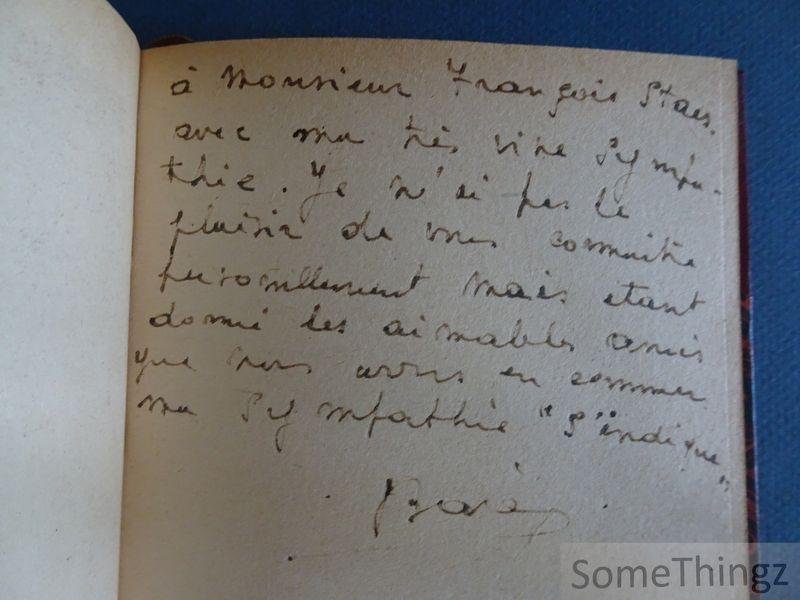 à Monsieur François Staes.
avec ma très vive Sympa-
thie. Je n'ai pas le
plaisir de vous connaitre
personellement mais etant
donné les aimables amis
que nous avons en commun
ma Sympathie "S'indique"
SomeThingz